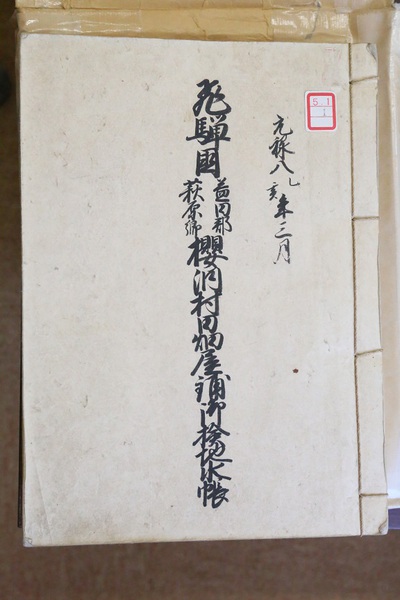 5.1
1
元禄八乙亥年三月
飛騨國
益田郡
萩原郷
櫻洞村田畑屋鋪御検地水帳